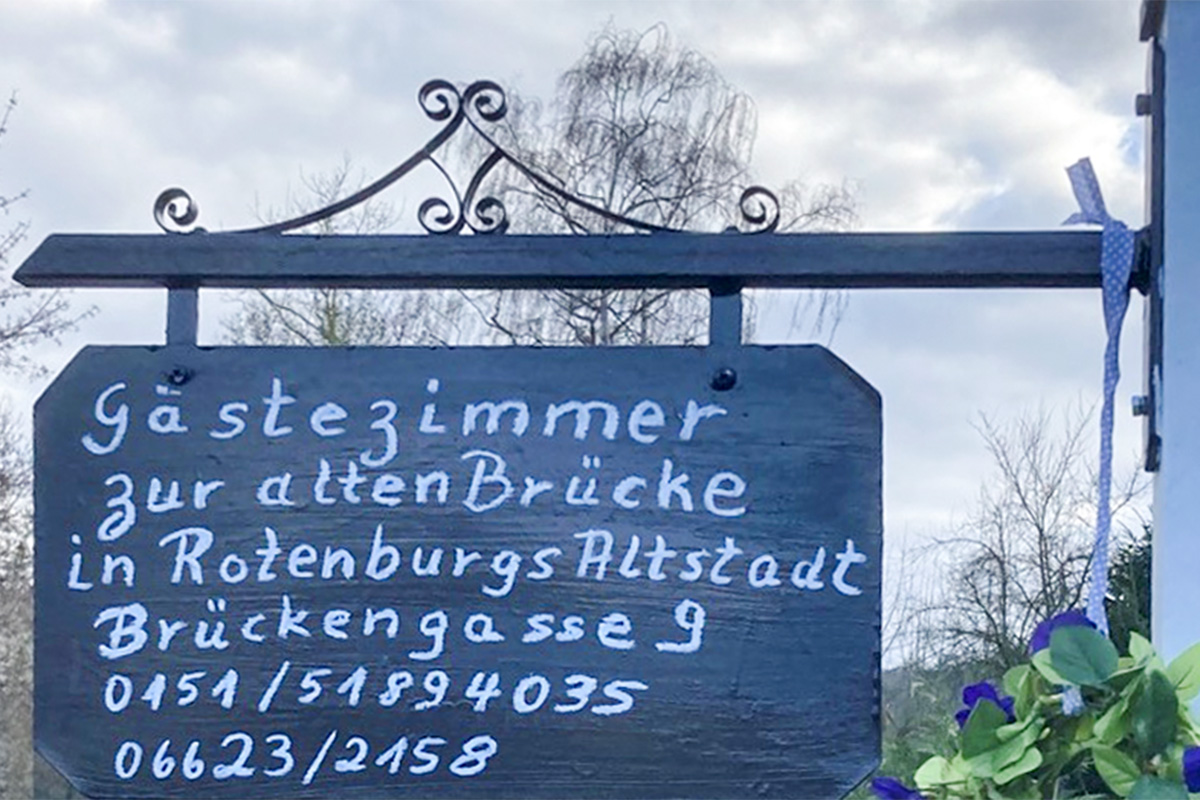 Gästezimmer
zur alten Brücke
in Rotenburgs Altstadt
Brückengasse 9
0151/51894035
06623/2158